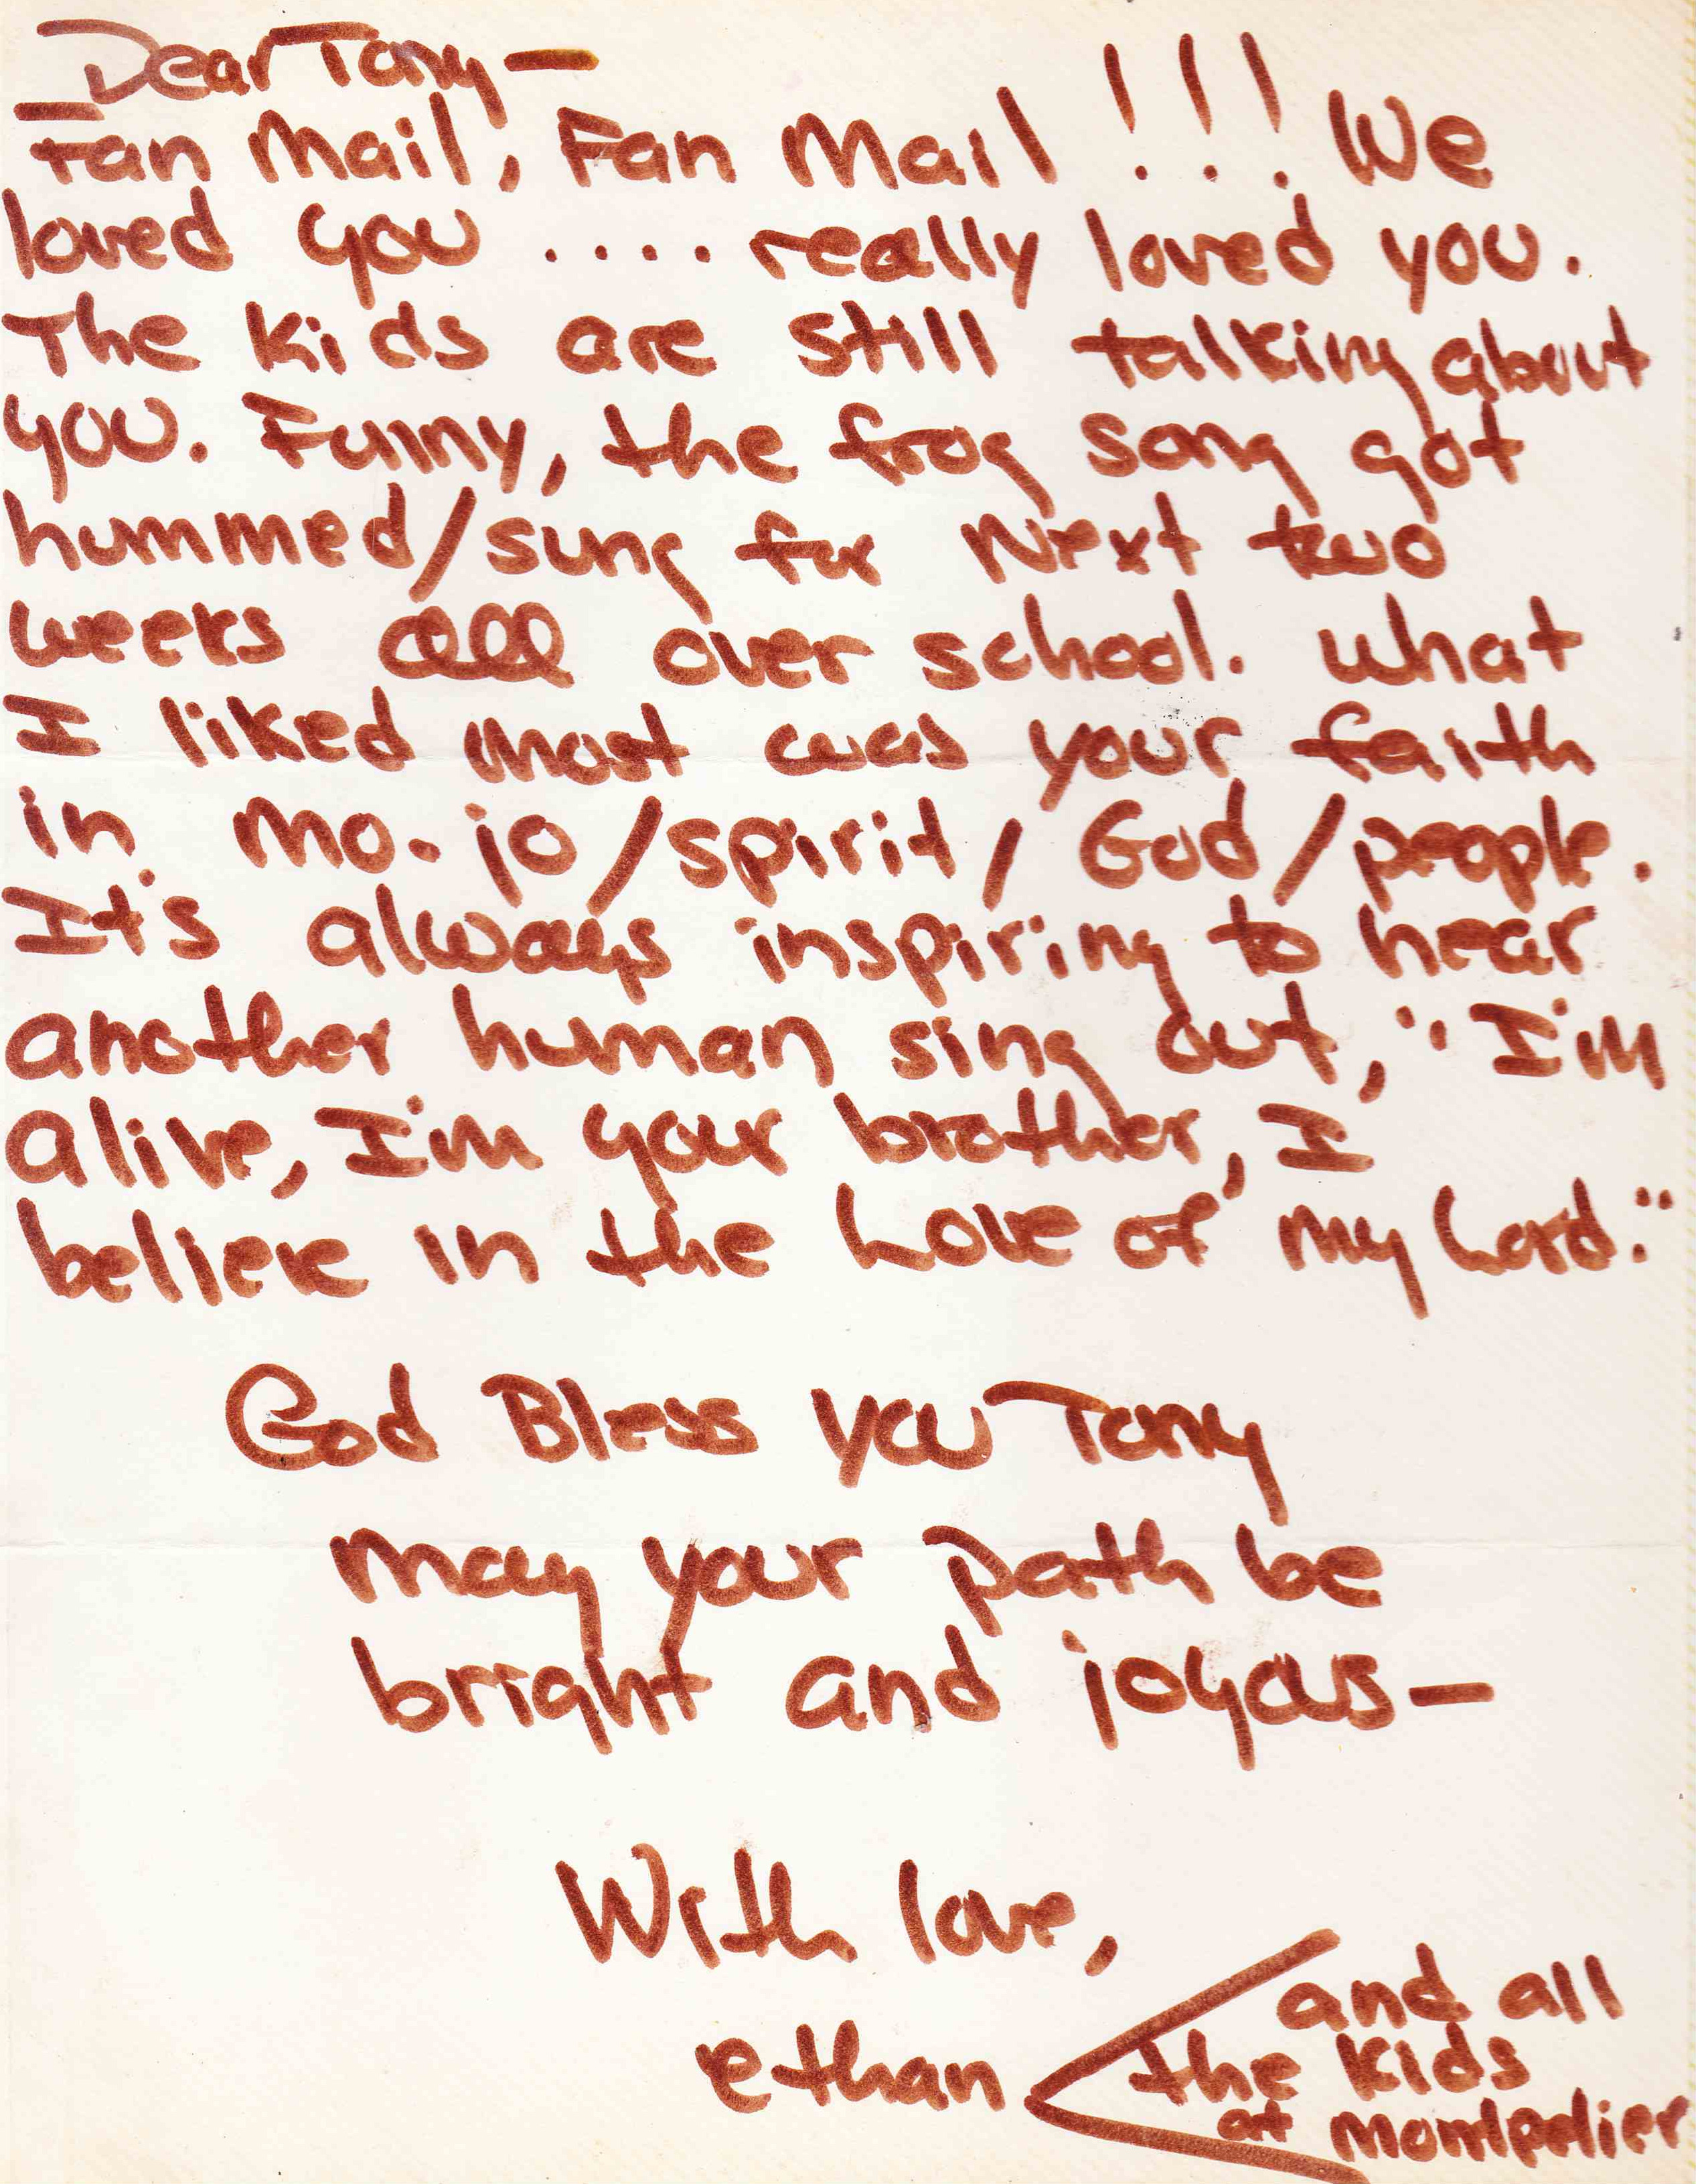 Dear Tony —
Fan Mail, Fan Mail !!! We
loved you .... really loved you.
The kids are still talking about
you. Funny, the frog song got
hummed/sung for Next two
weeks all over school. What
I liked most was your faith
in mo.jo/spirit/God/people.
It's always inspiring to hear
another human sing out, "I'm
alive, I'm your brother, I
believe in the Love of my Lord."
God Bless you Tony
may your path be
bright and joyous —
With love,
ethan < and all
the kids
at Montpelier